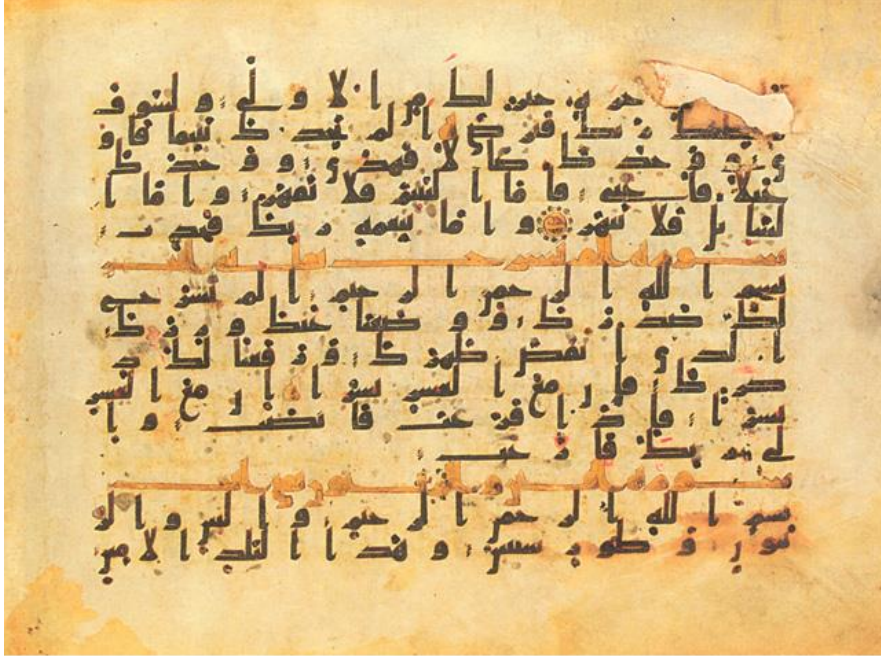 خير لك من الاولى ولسوف
ربك فترضى الم يجدك يتيما فاو
ى ووجدك ضالا فهدى ووجدك
عئلا فاغنى فاما اليتيم فلا تقهر واما ا
لسائل فلا تنهر واما بنعمة ربك فحدث
سورة الم نشرح
بسم الله الرحمن الرحيم الم نشرح
لك صدرك ووضعنا عنك وزرك
الذى انقض ظهرك ورفعنا لك ذ
كرك فان مع العسر يسرا ان مع العسر
يسرا فاذا فرغت فانصب وا
لى ربك فارغب
سورة
بسم الله الرحمن الرحيم والتين والز
يتون وطور سينين وهذا البلد الامين